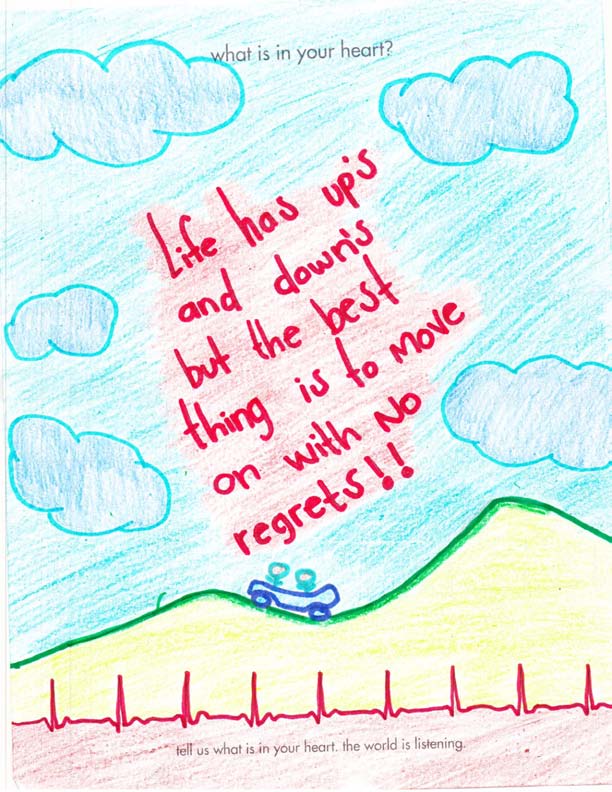 what is in your heart?
Life has up's
and down's
but the best
thing is to move
on with No
regrets!!
tell us what is in your heart. the world is listening.